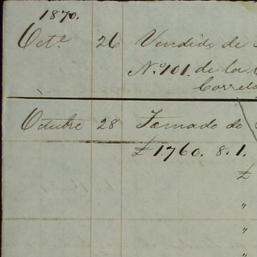 1870.
Octe 26 Vendido de
No. 101. de la
Octubre 28 Tomado de
£ 1760. 8. 1.
£
"
"
"